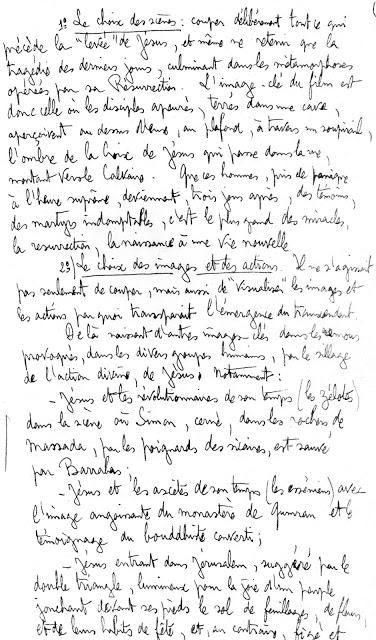 1º Le choix des scènes : couper délibérément tout ce qui
précède la "levée" de Jésus, et même ne retenir que la
tragédie des derniers jours, culminant dans les métamorphoses
opérées par sa Résurrection. L'image-clé du film est
donc celle où les disciples apeurés, terrés dans une cave,
aperçoivent au dessus d'eux, au plafond, à travers un soupirail,
l'ombre de la Croix de Jésus qui passe dans la rue,
montant vers le Calvaire. Que ces hommes, pris de panique
à l'heure suprême, deviennent, trois jours après, des témoins,
des martyrs indomptables, c'est le plus grand des miracles,
la resurrection, la naissance à une vie nouvelle
2º) Le choix des images et des actions. Il ne s'agissait
pas seulement de couper, mais aussi de "visualiser" les images et
les actions par quoi transparait l'émergence du transcendant.
De là naissent d'autres images-clés dans les remous
provoqués, dans les divers groupes humains, par le sillage
de l'action divine, de Jésus. Notamment :
- Jésus et les révolutionnaires de son temps (les zélotes)
dans la scène où Simon, cerné, dans les rochers de
Massada, par les poignards des sicaires, est sauvé
par Barrabas ;
- Jésus et les ascètes de son temps (les esséniens) avec
l'image angoissante du monastère de Qumran et le
témoignage du bouddhiste converti ;
- Jésus entrant dans Jérusalem, suggéré par le
double triangle, lumineux par la joie d'un peuple
jonchant devant ses pieds le sol de feuillages, de fleurs,
et de leurs habits de fête, et, au contraire, figé et